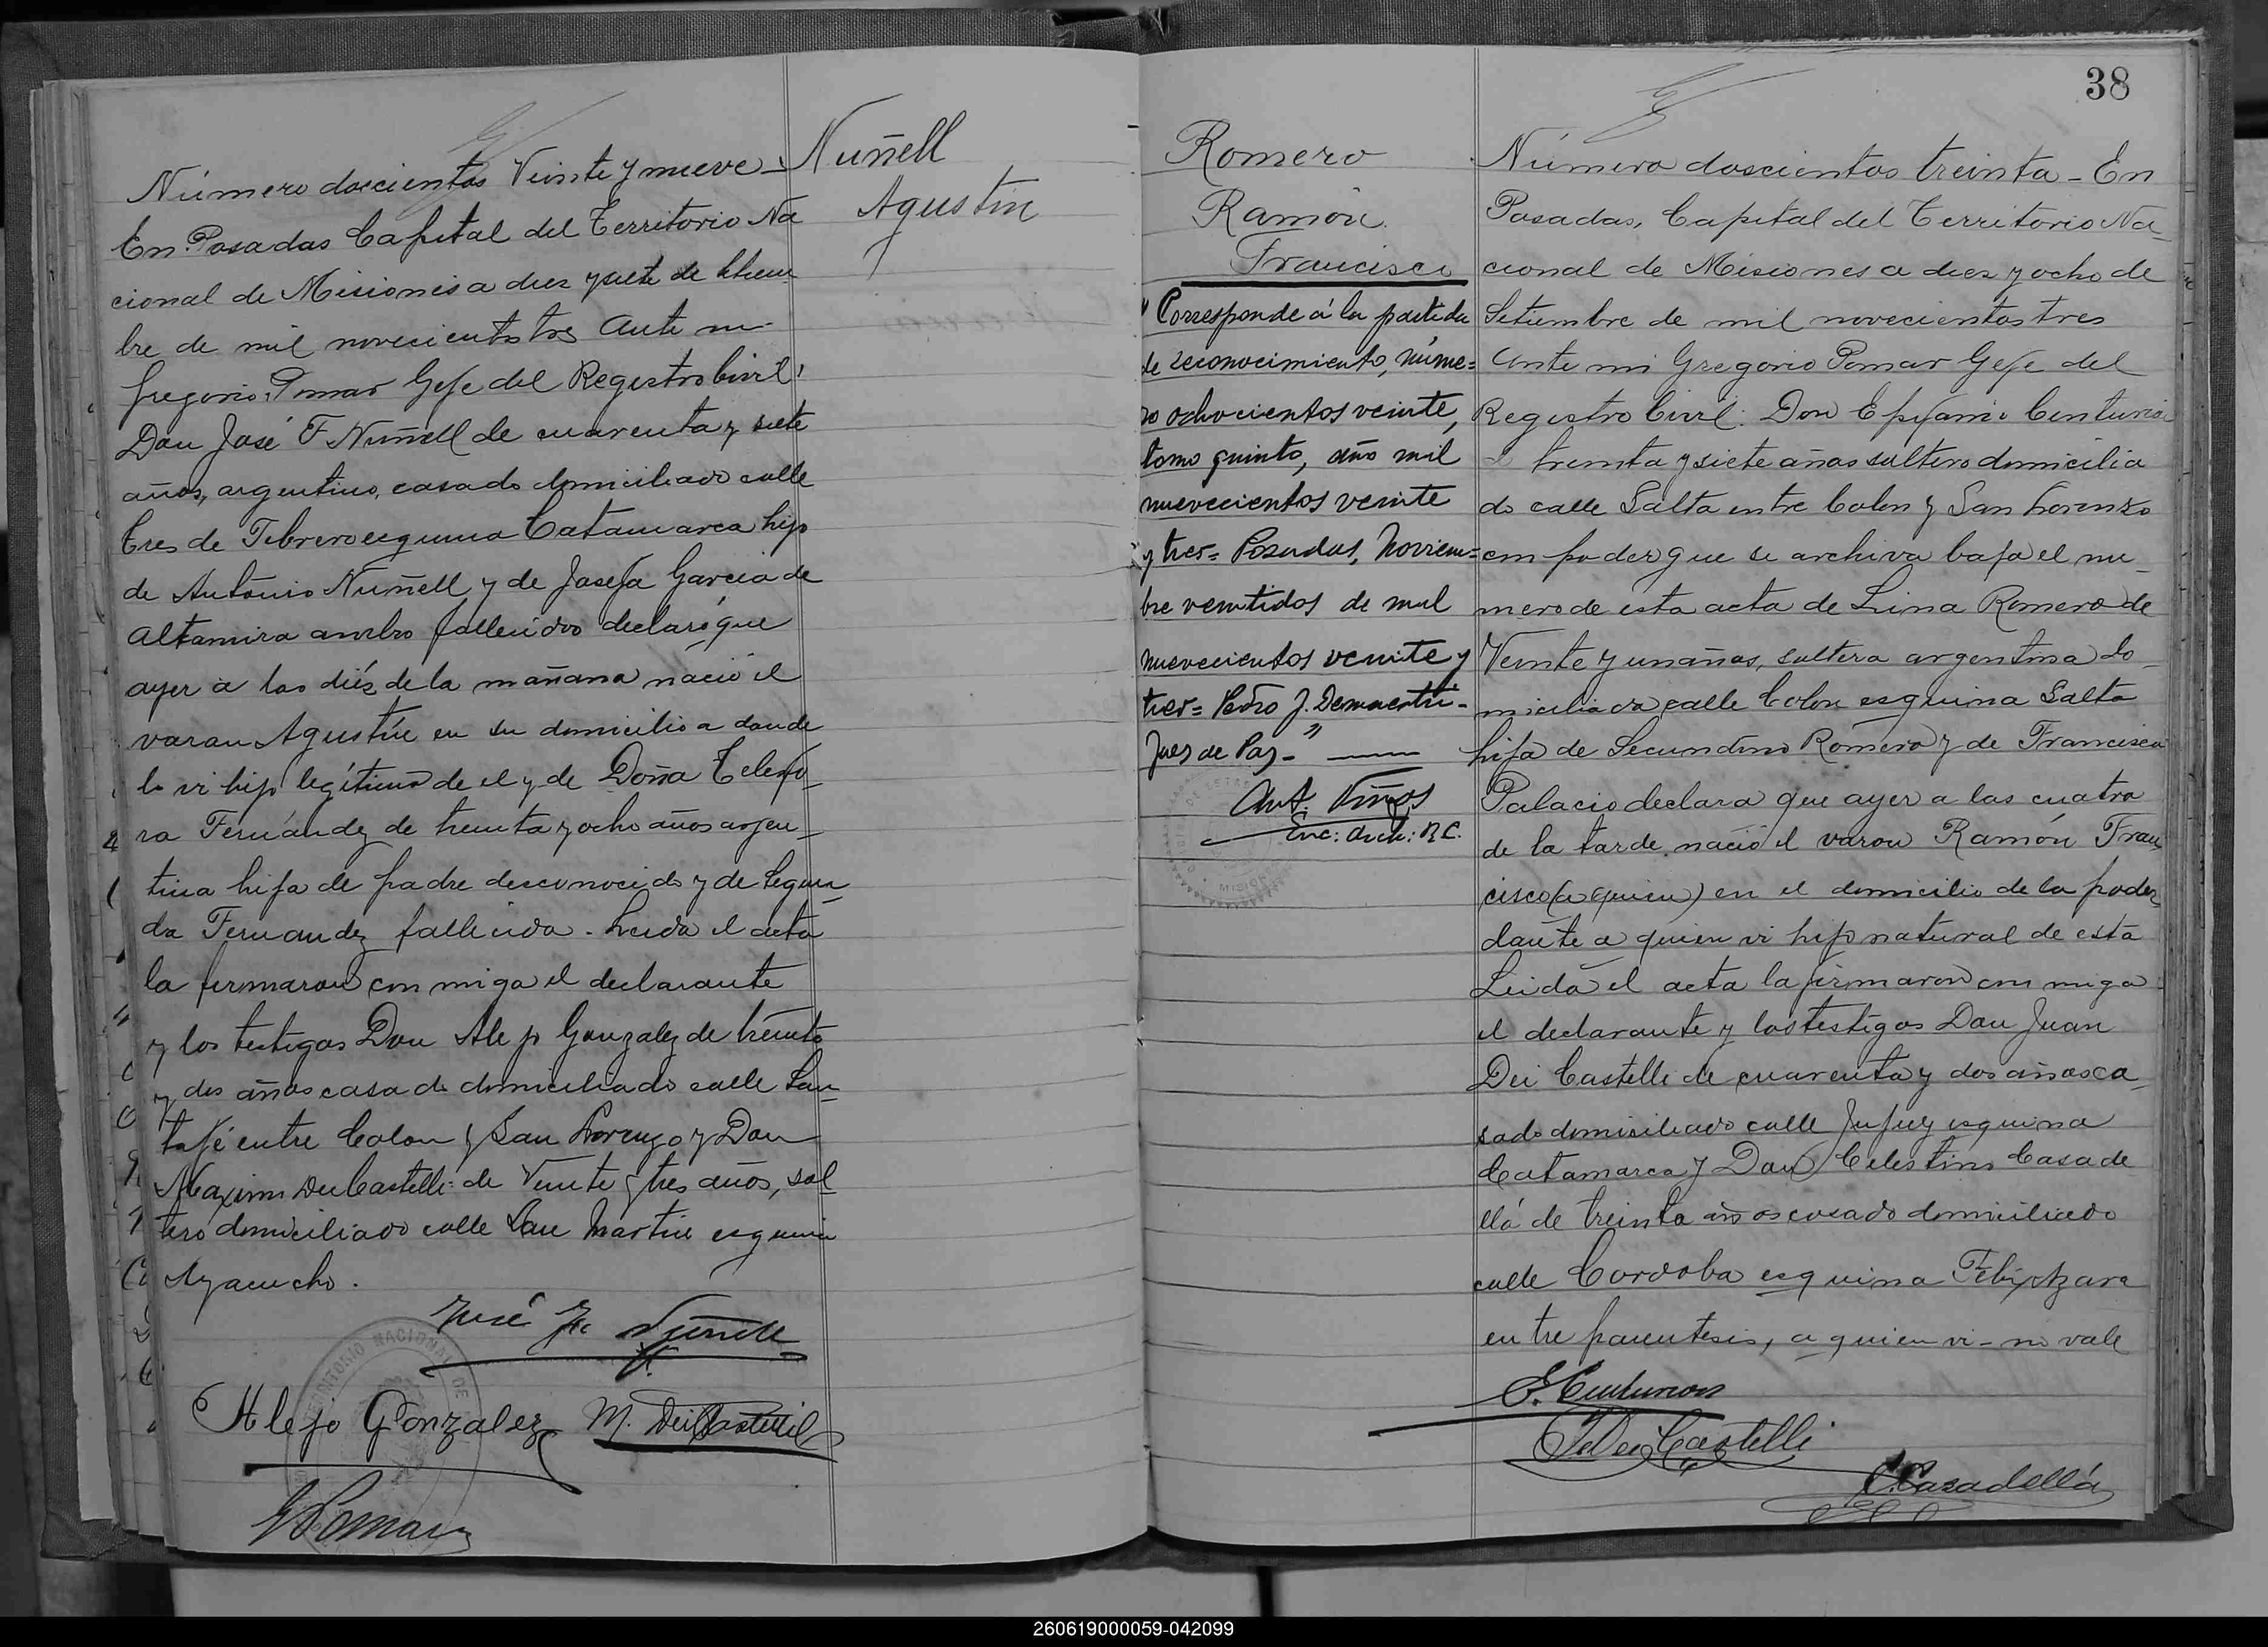 Número doscientos Veinte y nueve
En Posadas Capital del Territorio Na
cional de Misiones a diez y siete de
bre de mil novecientos tres Ante mi
Gregorio Pomar Gefe del Registro Civil
Don José F Nuñell de cuarenta y siete
años, argentino, casado domiciliado calle
Tres de Febrero esquina Catamarca hijo
de Antonio Nuñell y de Josefa Garcia de
Altamira ambos fallecidos declaró que
ayer a las diéz de la mañana nació el
varon Agustín en su domicilio a donde
lo vi hijo legítimo de el y de Doña Telesfo
ra Fernández de treinta y ocho años argen
tina hija de padre desconocido y de Segun
da Fernandez fallecida. Leida el acta
la firmaron con migo el declarante
y los testigos Don Alejo Gonzalez de treinta
y dos años casado domiciliado calle San
ta Fé entre Colon y San Lorenzo y Don
Maximo Dei Castelli de Veinte y tres años, sol
tero domiciliado calle San Martin esquina
Ayacucho.
José F. Nuñell
Alejo Gonzalez M. Dei Castelli
G Pomar
Nuñell
Agustin
38
Romero
Ramón
Francisco
"Corresponde á la partida
de reconocimiento, núme=
ro ochocientos veinte,
tomo quinto, año mil
nuevecientos veinte
y tres = Posadas, Noviem=
bre veintidos de mil
nuevecientos veinte y
tres = Pedro J.
Juez de Paz - "
Ant. Viños
Enc: Arch: R.C.
Número doscientos treinta - En
Posadas, Capital del Territorio Na_
cional de Misiones a diez y ocho de
Setiembre de mil novecientos tres
Ante mi Gregorio Pomar Gefe del
Registro Civil: Don Epifanio Centurion
treinta y siete años soltero domicilia
do calle Salta entre Colon y San Lorenzo
con poder que se archiva bajo el nu_
mero de esta acta de Lina Romero de
Veinte y un años, soltera argentina do_
miciliada calle Colon esquina Salta
hija de Secundino Romero y de Francisca
Palacio declara que ayer a las cuatro
de la tarde nació el varon Ramón Fran
cisco (a quien) en el domicilio de la poder
dante a quien vi hijo natural de esta
Leida el acta la firmaron con migo
el declarante y los testigos Don Juan
Dei Castelli de cuarenta y dos años ca_
sado domiciliado calle Jujuy esquina
Catamarca y Don Celestino Casade
llá de treinta años casado domiciliado
calle Cordoba esquina Felix Azara
entre parentesis, a quien vi - no vale
E. Centurion
J Dei Castelli
C. Casadellá
260619000059-042099